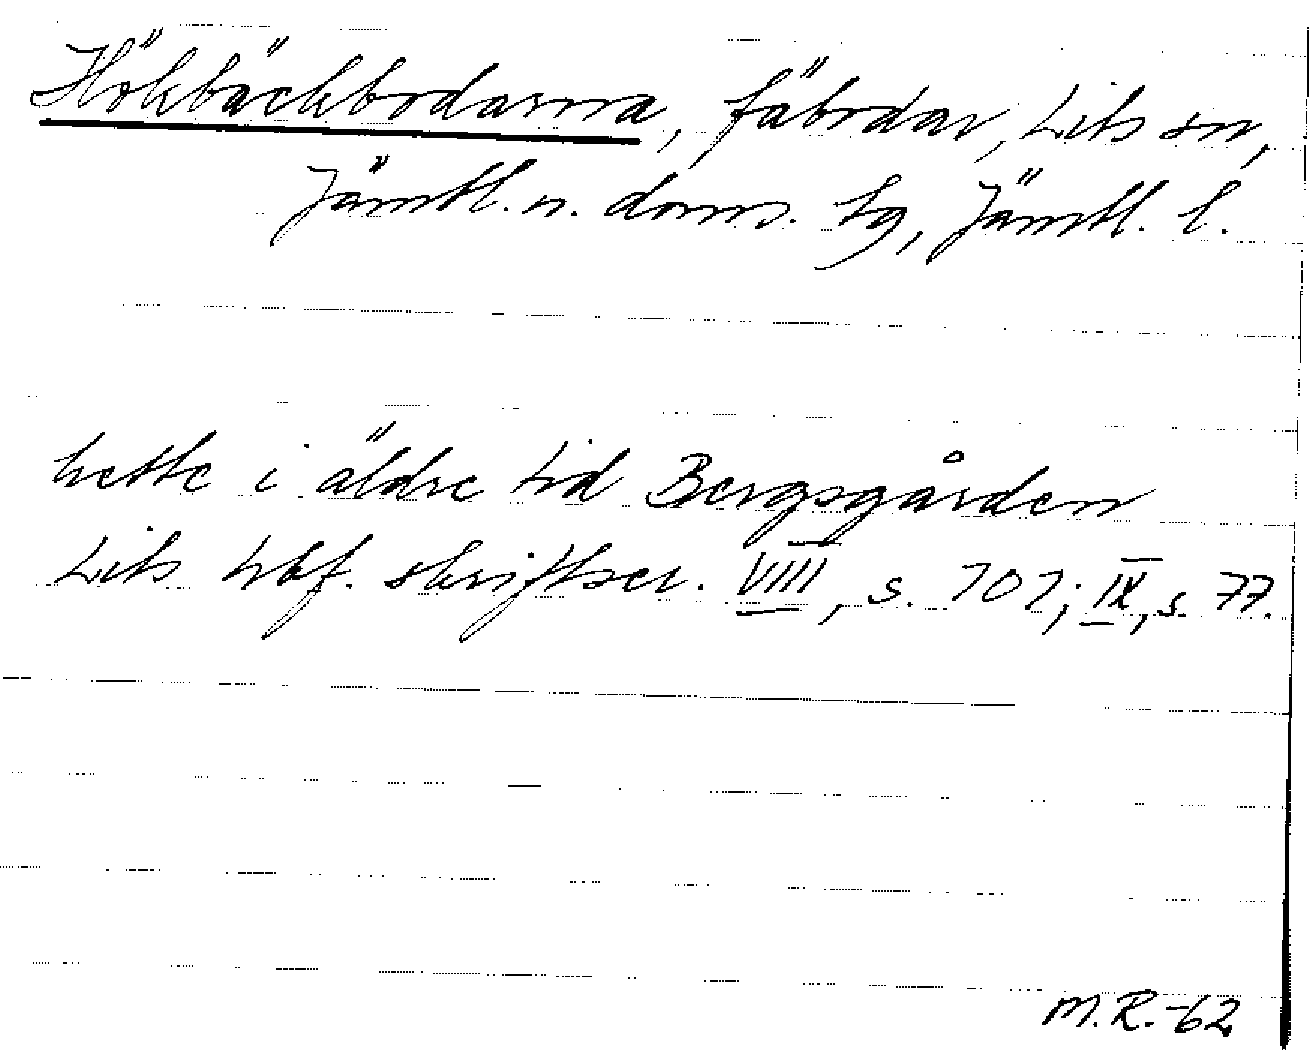 Hökbäckbodarna, fäbodar, Lits sn,
Jämtl. n. doms. tg, Jämtl. l.
hette i äldre tid Bergsgården
Lits hbf. skriftser. VIII, s. 101; IX, s. 77.
M.R.-62